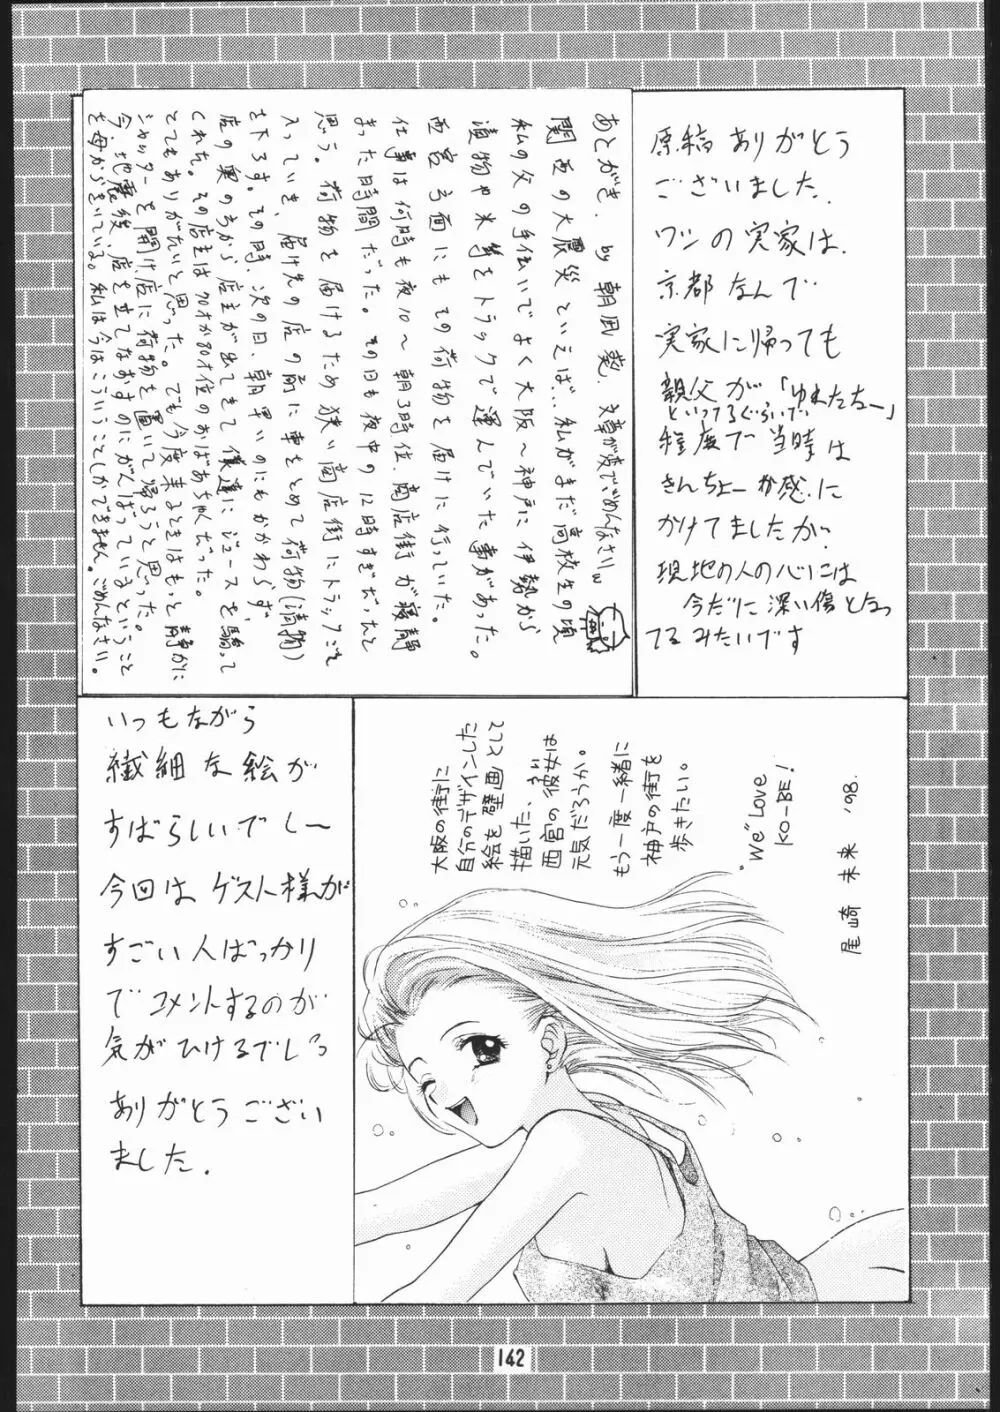 あとがき. by 朝凪 葵. 文章が変でごめんなさいw
関西の大震災といえば…私がまだ高校生の頃
私の父の手伝いでよく大阪〜神戸に伊勢から
漬物や米等をトラックで運んでいた事があった。
西宮方面にもその荷物を届けに行っていた。
仕事は何時も夜10〜朝3時位、商店街が寝静
まった時間だった。その日も夜中の12時すぎだったと
思う。荷物を届けるため狭い商店街にトラックごと
入っていき、届け先の店の前に車をとめて荷物(漬物)
を下ろす。その時、次の日、朝早いのにもかかわらず、
店の奥の方から店主が出てきて僕達にジュースを騎って
くれた。その店主は70才か80才位のおばあちゃんだった。
とてもありがたいと思った。でも今度来るときはもっと静かに
シャッターを開け店に荷物を置いて帰ろうと思った。
今、地震後、店を立てなおすのにがんばっているということ
を母からきいている。私は今はこういうことしかできません。ごめんなさい。
原稿ありがとう
ございました.
ワシの実家は.
京都なんで
実家に帰っても
親父が「ゆれたなー」
といってるぐらいで
程度で当時は
きんちょー感に
かけてましたが.
現地の人の心には
今だに深い傷となっ
てるみたいです
いつもながら
繊細な絵が
すばらしいでしー
今回はゲスト様が
すごい人ばっかり
でコメントするのが
気がひけるでしっ
ありがとうござい
ました.
大阪の街に
自分のデザインした
絵を壁画として
描いた、
西宮の彼女は
元気だろうか。
もう一度一緒に
神戸の街を
歩きたい。
"We" Love
KO-BE!
尾崎 未来 '98.
142